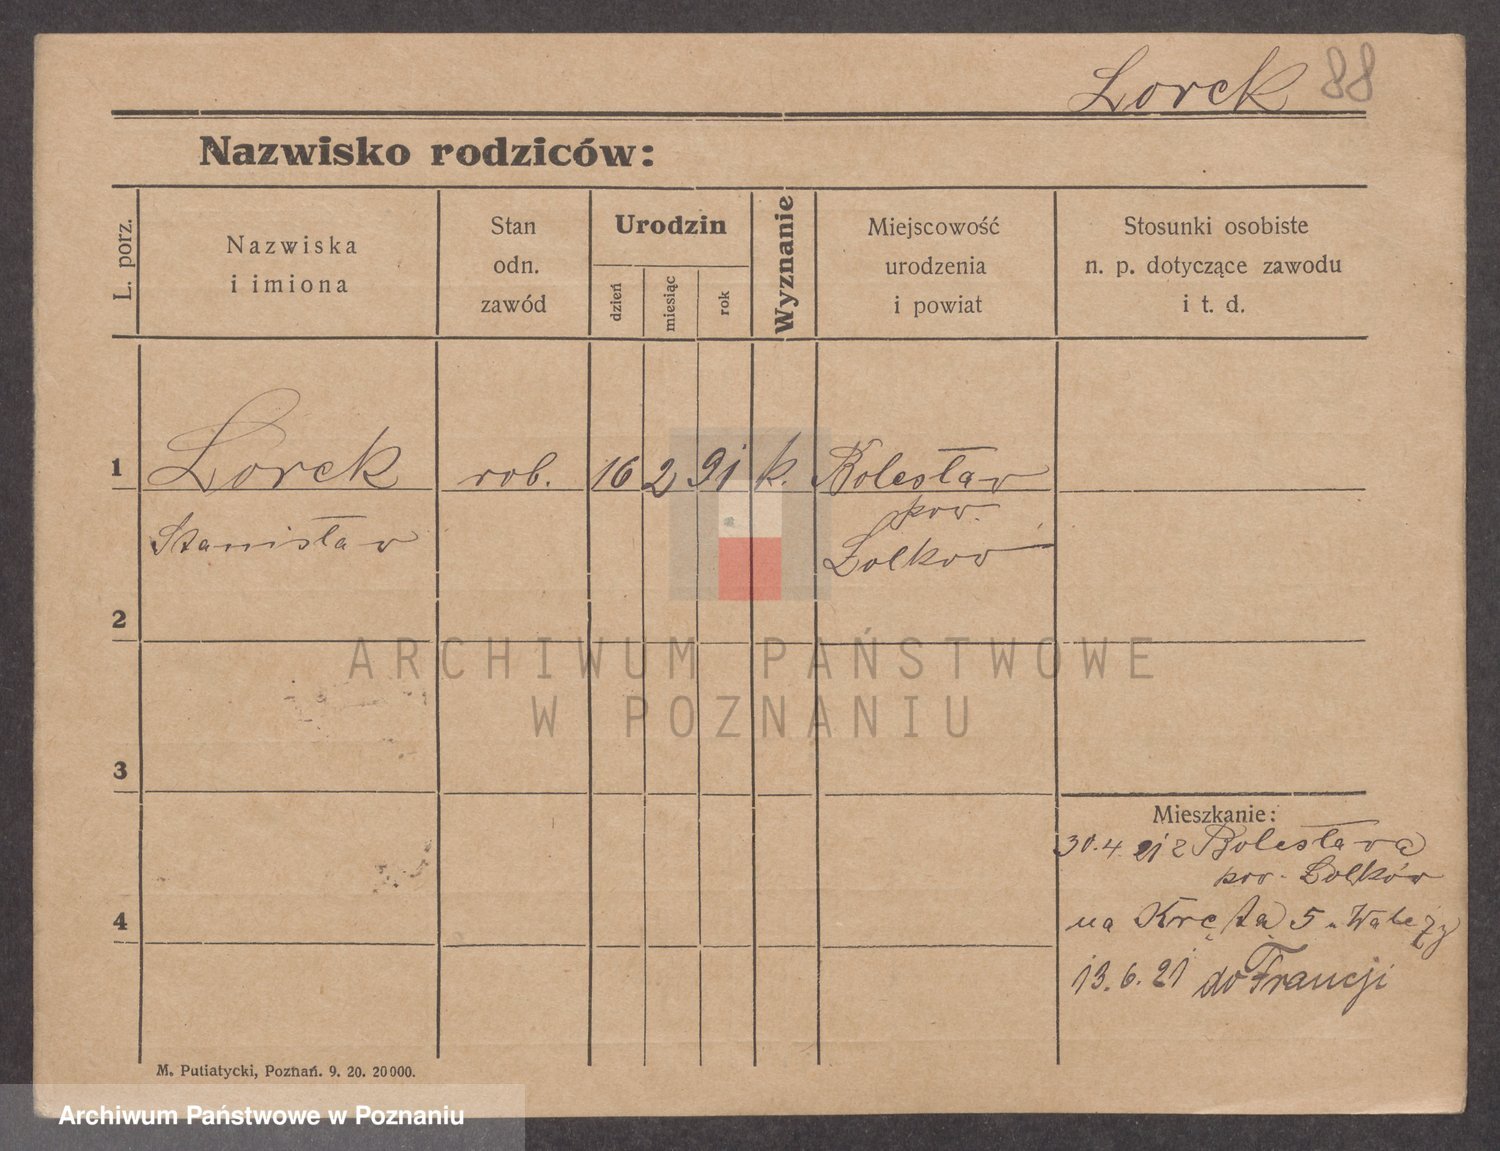 Lorek 88
Nazwisko rodziców:
L. porz.
Nazwiska
i imiona
Stan
odn.
zawód
Urodzin
dzień
miesiąc
rok
Wyznanie
Miejscowość
urodzenia
i powiat
Stosunki osobiste
n. p. dotyczące zawodu
i t. d.
1 Lorek rob. 16 2 91 k. Bolesław
pow.
Stanisław Zolkow
2
ARCHIWUM PAŃSTWOWE
W POZNANIU
3
Mieszkanie:
30.4.21 z Bolesława
pow. Zolków
4
na Krętą 5
13.6.21 do Francji
M. Putiatycki, Poznań. 9. 20. 20000.
Archiwum Państwowe w Poznaniu